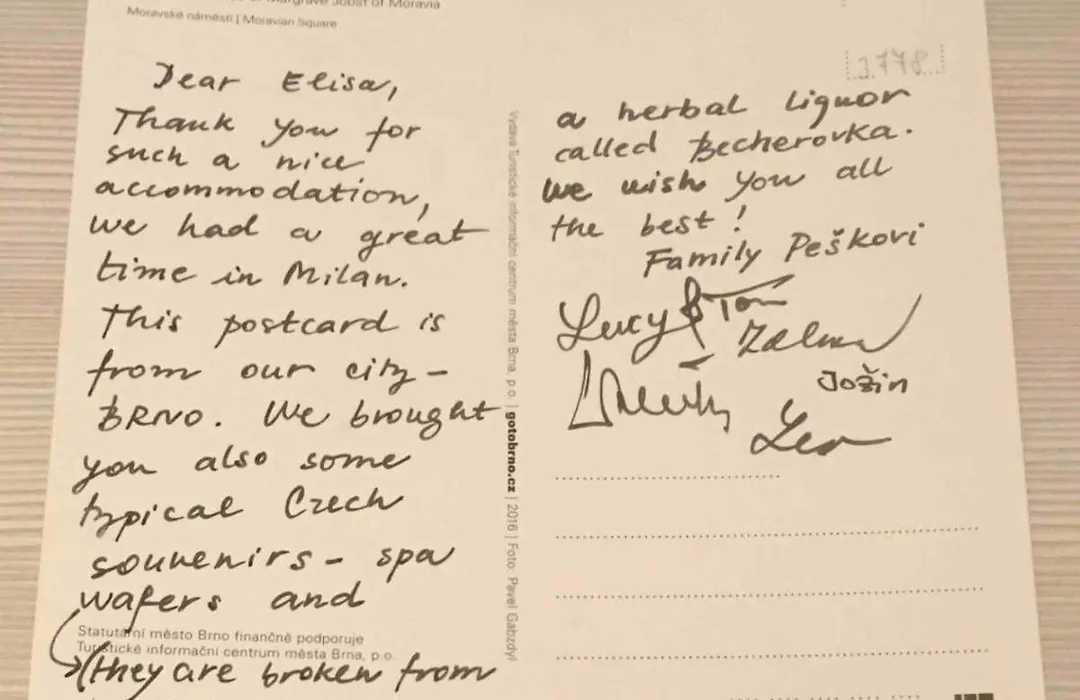 Jobst of Moravia
Moravské náměstí | Moravian Square
Dear Elisa,
Thank you for
such a nice
accommodation,
we had a great
time in Milan.
This postcard is
from our city -
BRNO. We brought
you also some
typical Czech
souvenirs - spa
wafers and
Statutární město Brno finančně podporuje
Turistické informační centrum města Brna, p.o.
(they are broken from
Vydalo Turistické informační centrum města Brna, p.o. | gotobrno.cz | 2016 | Foto: Pavel Gabzdyl
3.778
a herbal liquor
called Becherovka.
We wish you all
the best!
Family Peškovi
Lucy & Tom
Jožin